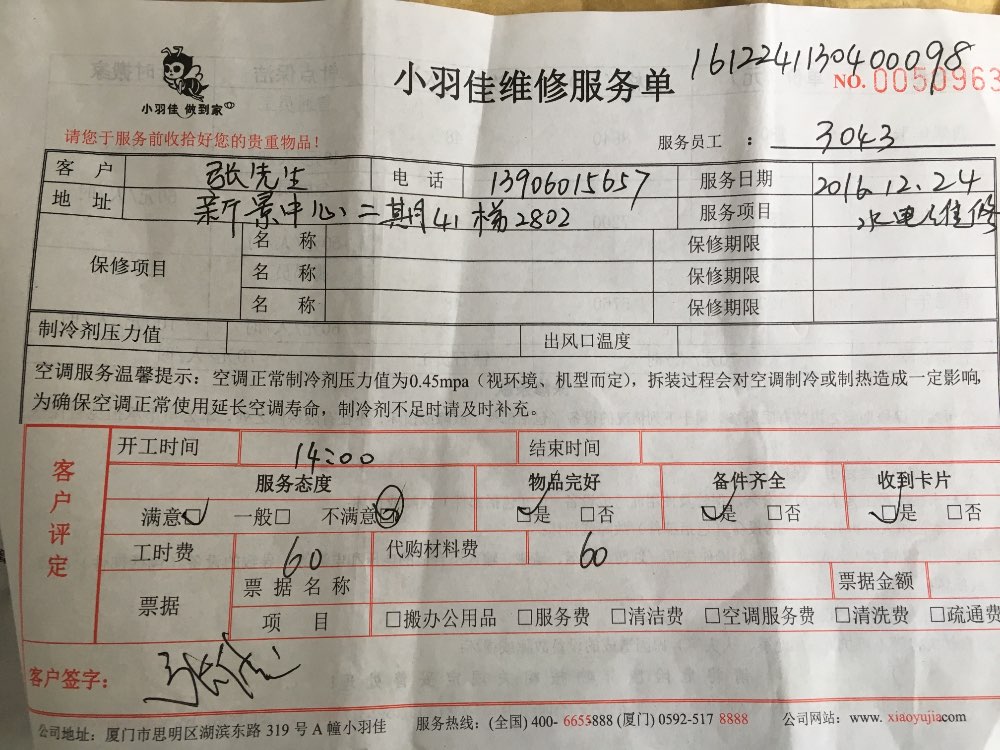 小羽佳 做到家
小羽佳维修服务单
161224113040098
NO. 0050963
请您于服务前收拾好您的贵重物品！
服务员工 ： 3043
客 户 张先生 电 话 13906015657 服务日期 2016.12.24
地 址 新景中心二期41梯2802 服务项目 水电维修
保修项目
名 称 保修期限
名 称 保修期限
名 称 保修期限
制冷剂压力值 出风口温度
空调服务温馨提示：空调正常制冷剂压力值为0.45mpa（视环境、机型而定），拆装过程会对空调制冷或制热造成一定影响，
为确保空调正常使用延长空调寿命，制冷剂不足时请及时补充。
客户评定
开工时间 14:00 结束时间
服务态度 物品完好 备件齐全 收到卡片
满意☑ 一般□ 不满意☑ ☑是 □否 ☑是 □否 ☑是 □否
工时费 60 代购材料费 60
票据 票据名称 票据金额
项 目 □搬办公用品 □服务费 □清洁费 □空调服务费 □清洗费 □疏通费
客户签字：
公司地址：厦门市思明区湖滨东路 319 号 A 幢小羽佳 服务热线：(全国) 400- 6655888 (厦门) 0592-517 8888 公司网站：www. xiaoyujia.com